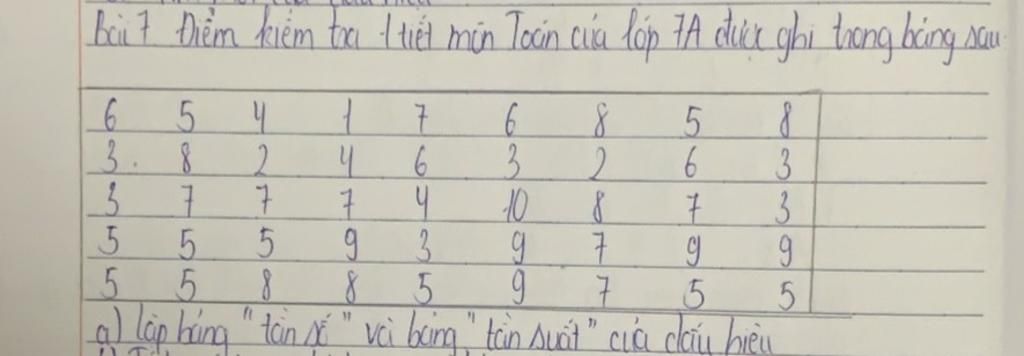 Bài 7 Điểm kiểm tra 1 tiết môn Toán của lớp 7A được ghi trong bảng sau
6 5 4 1 7 6 8 5 8
3 8 2 4 6 3 2 6 3
3 7 7 7 4 10 8 7 3
5 5 5 9 3 9 7 9 9
5 5 8 8 5 9 7 5 5
a) Lập bảng "tần số" và bảng "tần suất" của dấu hiệu